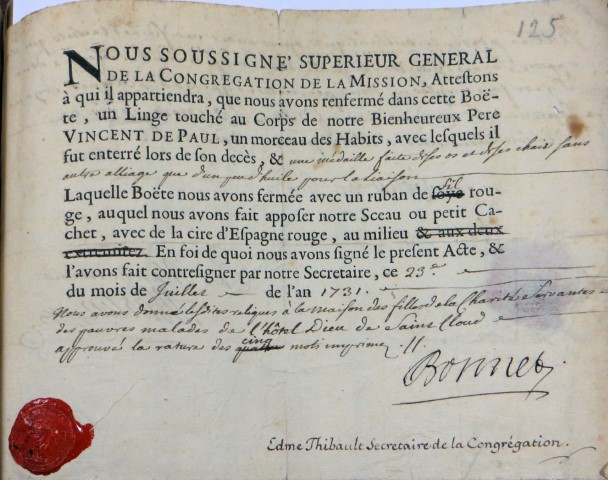 125
NOUS SOUSSIGNE' SUPERIEUR GENERAL
DE LA CONGREGATION DE LA MISSION, Attestons
à qui il appartiendra, que nous avons renfermé dans cette Boë-
te, un Linge touché au Corps de notre Bienheureux Pere
VINCENT DE PAUL, un morceau des Habits, avec lesquels il
fut enterré lors de son decès, & une médaille faite de ses os et de ses chairs sans
autre alliage que d'un peu d'huile pour la liaison
Laquelle Boëte nous avons fermée avec un ruban de soye fil rou-
ge, auquel nous avons fait apposer notre Sceau ou petit Ca-
chet, avec de la cire d'Espagne rouge, au milieu & aux deux
extremitez. En foi de quoi nous avons signé le present Acte, &
l'avons fait contresigner par notre Secretaire, ce 23e
du mois de Juillet de l'an 1731.
Nous avons donné lesdites reliques à la maison des filles de la Charité Servantes
des pauvres malades de l'hôtel Dieu de Saint Cloud
approuvé la rature des quattre cinq mots imprimez ||.
Bonnet
Edme Thibault Secretaire de la Congrégation.